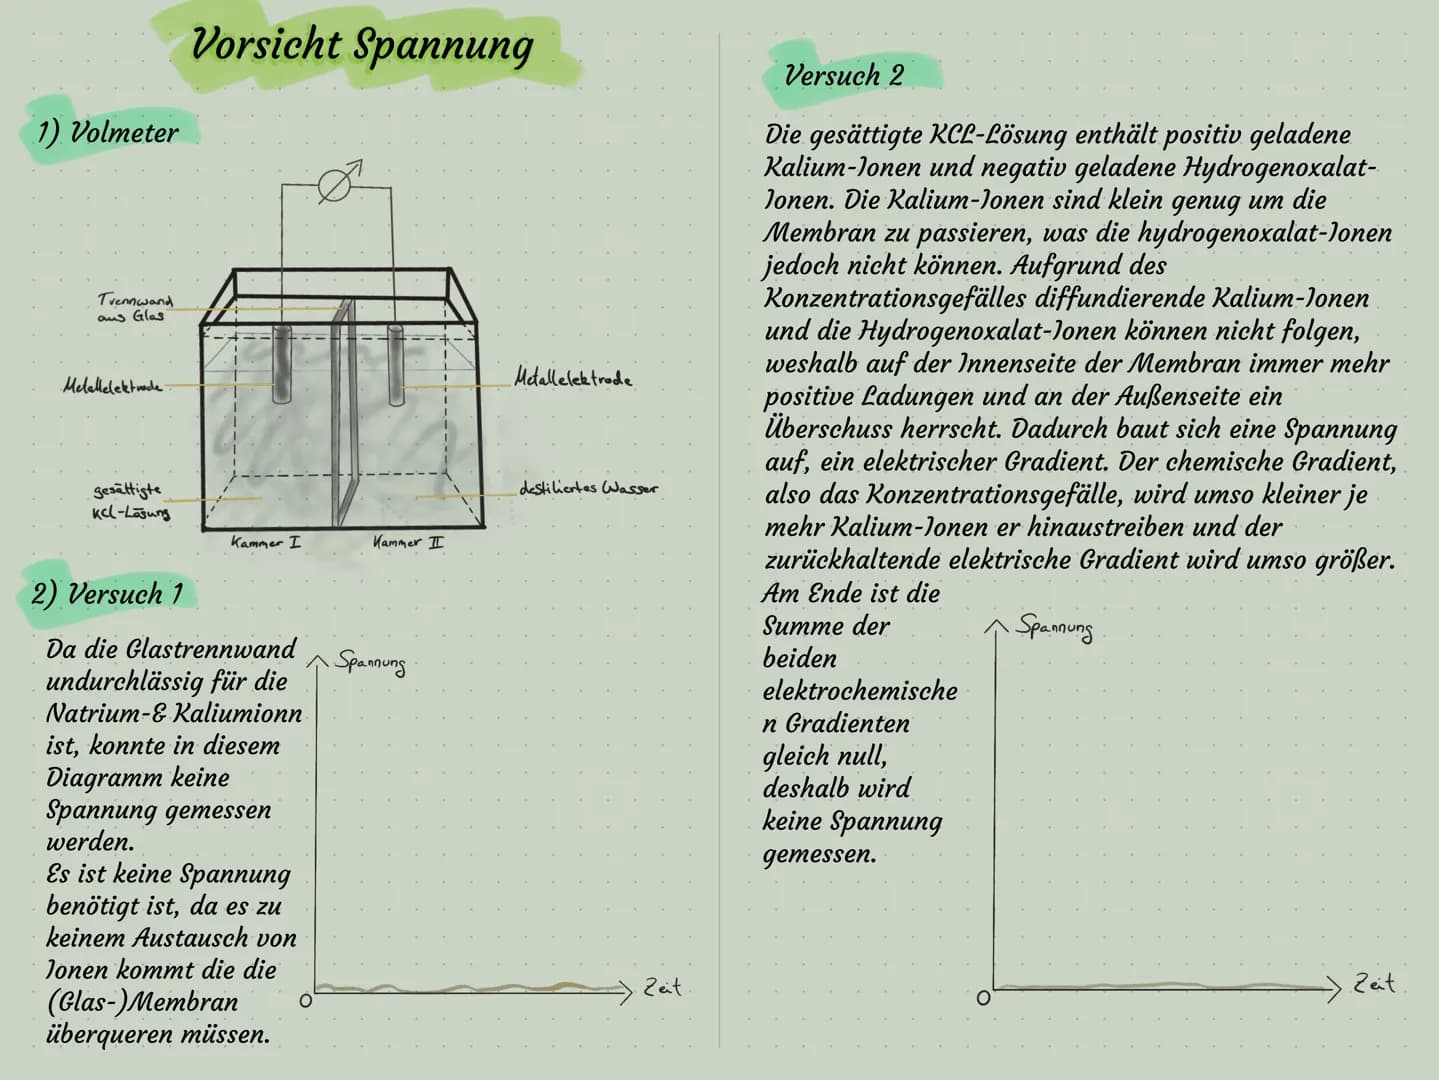 Vorsicht Spannung
1) Volmeter
Trennwand
aus Glas
Metallelektrode
Metallelektrode
gesättigte
KCl-Lösung
destiliertes Wasser
Kammer I
Kammer II
2) Versuch 1
Da die Glastrennwand
undurchlässig für die
Natrium-& Kaliumionn
ist, konnte in diesem
Diagramm keine
Spannung gemessen
werden.
Es ist keine Spannung
benötigt ist, da es zu
keinem Austausch von
Ionen kommt die die
(Glas-)Membran
überqueren müssen.
Spannung
0
Zeit
Versuch 2
Die gesättigte KCL-Lösung enthält positiv geladene
Kalium-Ionen und negativ geladene Hydrogenoxalat-
Ionen. Die Kalium-Ionen sind klein genug um die
Membran zu passieren, was die hydrogenoxalat-Ionen
jedoch nicht können. Aufgrund des
Konzentrationsgefälles diffundierende Kalium-Ionen
und die Hydrogenoxalat-Ionen können nicht folgen,
weshalb auf der Innenseite der Membran immer mehr
positive Ladungen und an der Außenseite ein
Überschuss herrscht. Dadurch baut sich eine Spannung
auf, ein elektrischer Gradient. Der chemische Gradient,
also das Konzentrationsgefälle, wird umso kleiner je
mehr Kalium-Ionen er hinaustreiben und der
zurückhaltende elektrische Gradient wird umso größer.
Am Ende ist die
Summe der
beiden
elektrochemische
n Gradienten
gleich null,
deshalb wird
keine Spannung
gemessen.
Spannung
0
Zeit